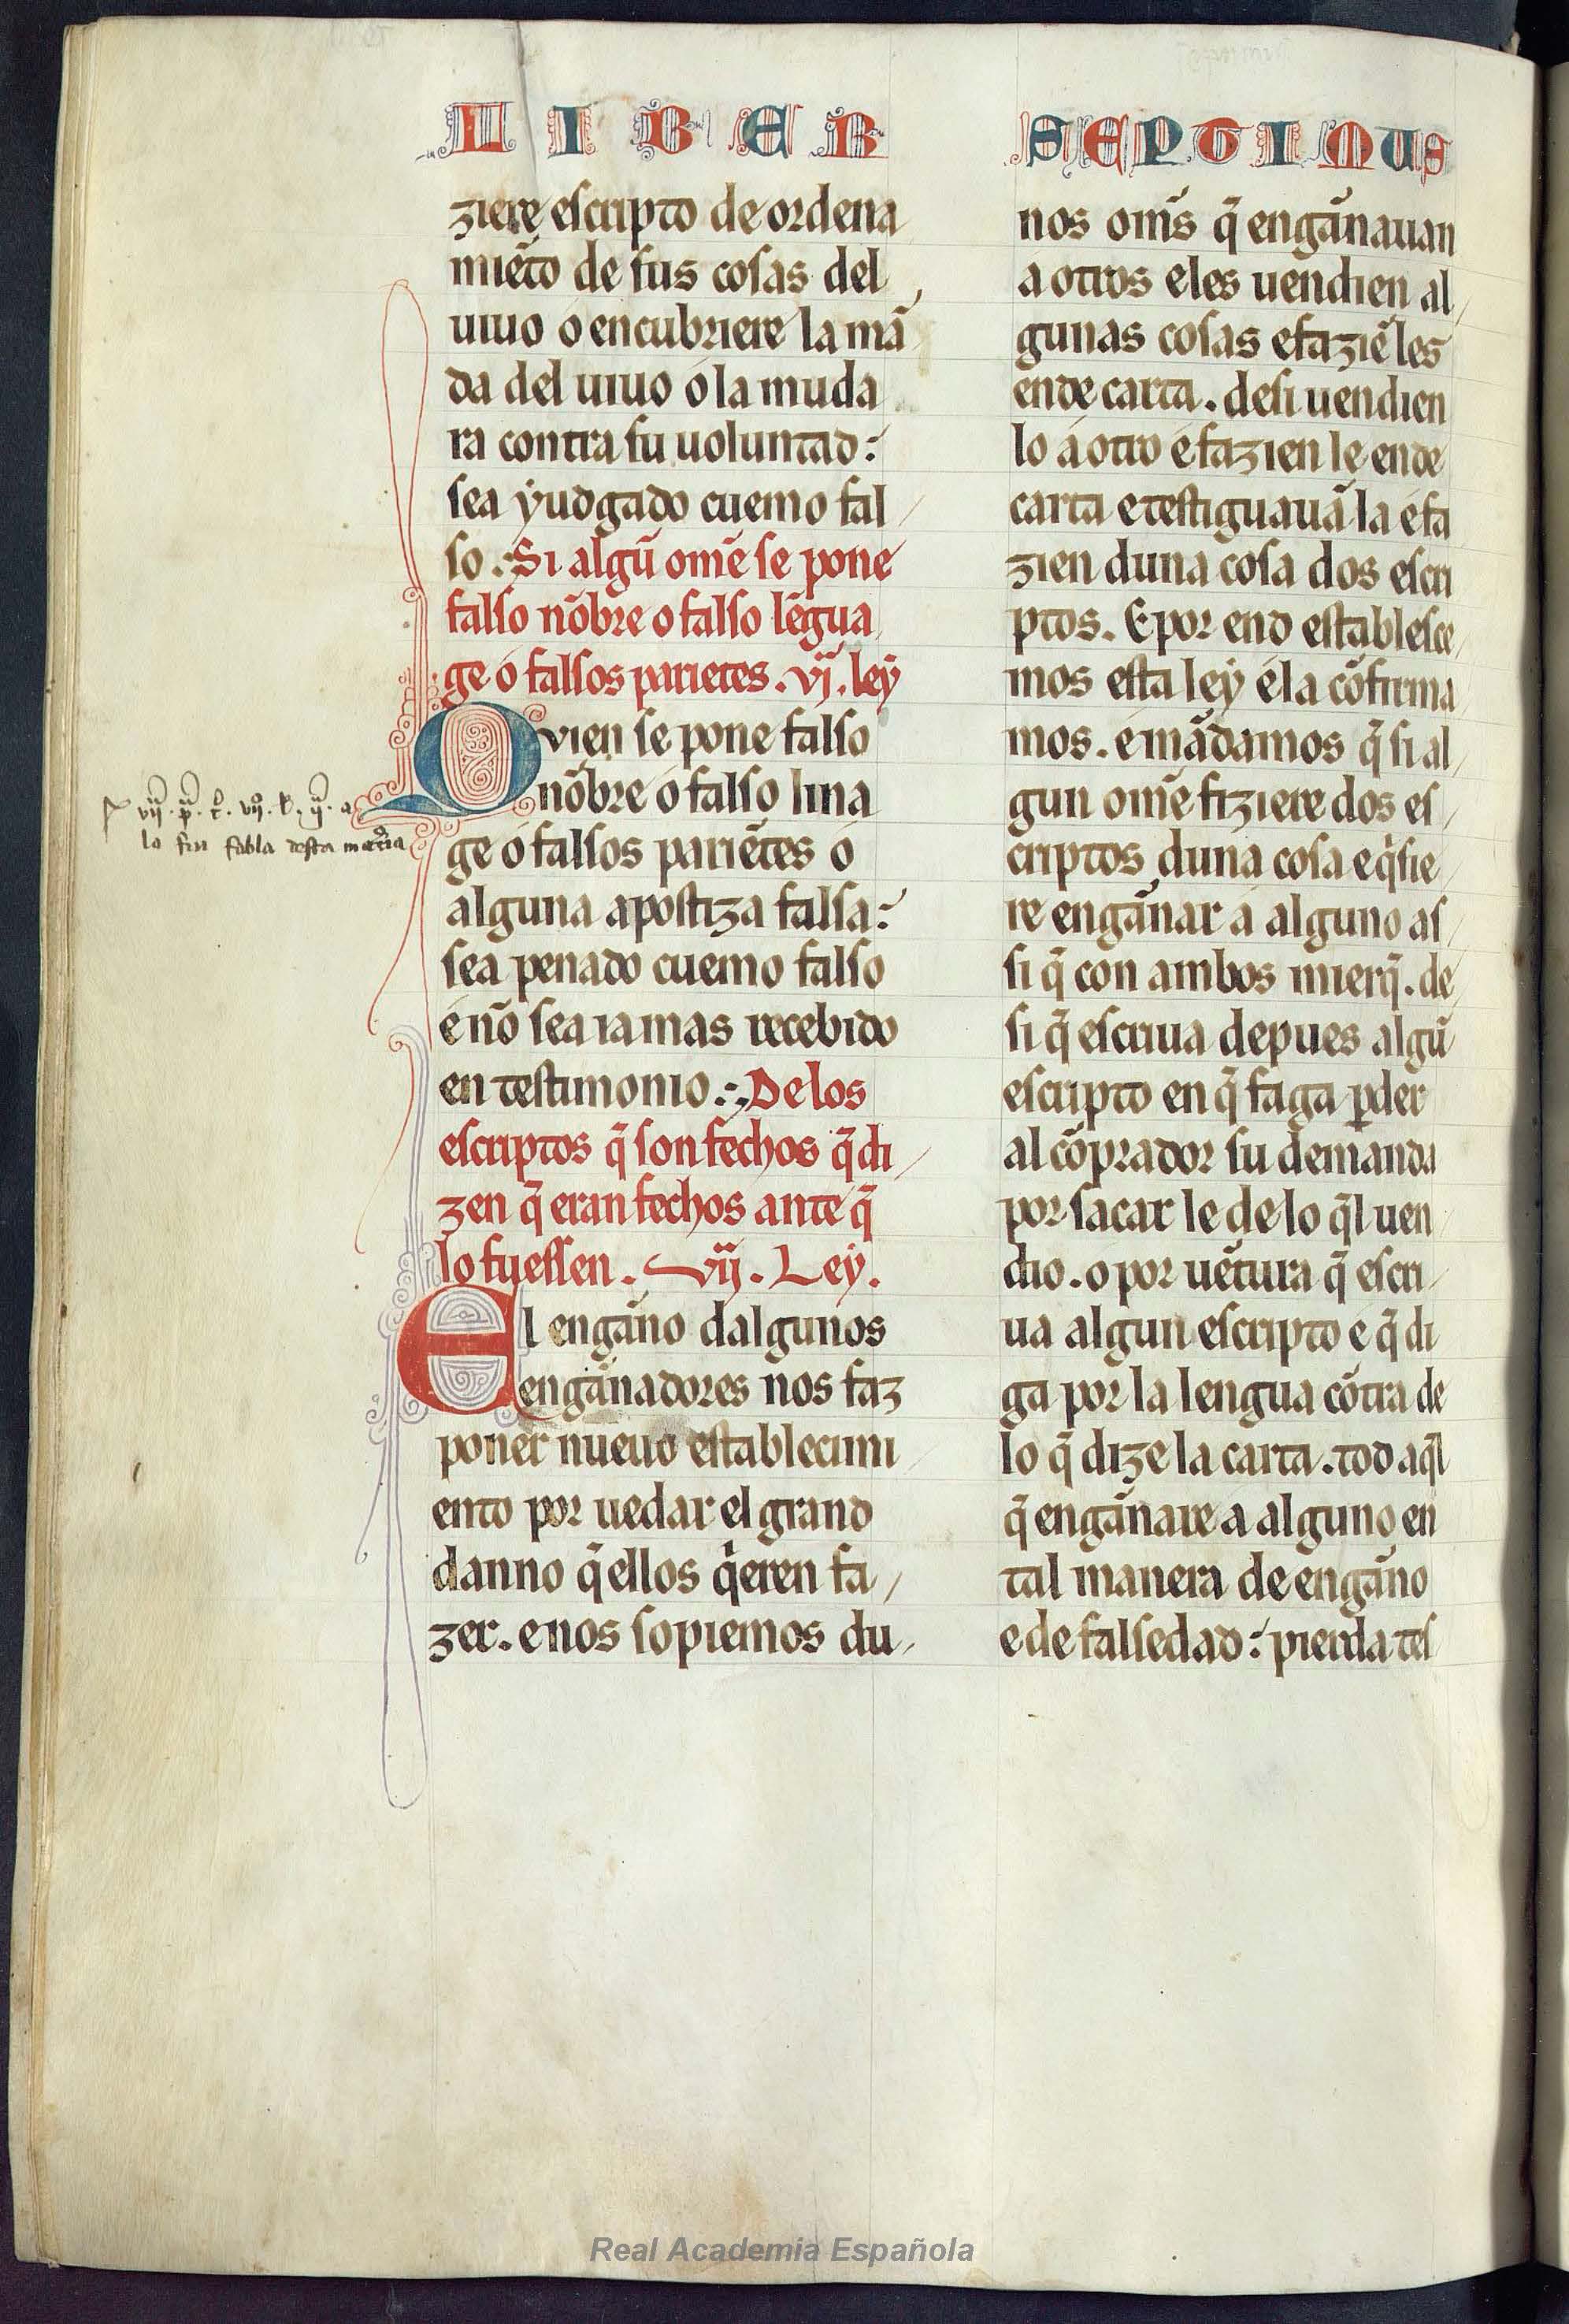 LIBER
ziere escripto de ordena
miẽto de sus cosas del
uiuo o encubriere la mã
da del uiuo ó la muda
ra contra su uoluntad:
sea ẏudgado cuemo fal
so. Si algũ omẽ se pone
falso nõbre o falso lẽgua
ge ó falsos parietes. vj. leẏ
Qvien se pone falso
nõbre ó falso lina
ge ó falsos pariẽtes ó
alguna apostiza falsa:
sea penado cuemo falso
é nõ sea iamas recebido
en testimonio. De los
escriptos q̃ son fechos q̃ di
zen q̃ eran fechos ante q̃
lo fuessen. vij. Leẏ.
El engãno dalgunos
engãnadores nos faz
poner nueuo establecimi
ento por uedar el grand
danno q̃ ellos q̃eren fa
zer. e nos sopiemos du
lo fin fabla desta mat̃ia
SEPTIMUS
nos om̃s q̃ engãnauan
a otros e les uendien al
gunas cosas e faziẽ les
ende carta. desi uendien
lo á otro é fazien le ende
carta e testiguauã la é fa
zien duna cosa dos escri
ptos. E por end establesce
mos esta leẏ é la cõfirma
mos. é mãdamos q̃ si al
gun omẽ fiziere dos es
criptos duna cosa e q̃sie
re engãnar á alguno as
si q̃ con ambos mierq̃. de
si q̃ escriua depues algũ
escripto en q̃ faga ꝑder
al cõprador su demanda
por sacar le de lo q̃l uen
dio. o por uẽtura q̃ escri
ua algun escripto e q̃ di
ga por la lengua cõtra de
lo q̃ dize la carta. tod aq̃l
q̃ engãnare a alguno en
tal manera de engãno
e de falsedad: pierda tes
Real Academia Española